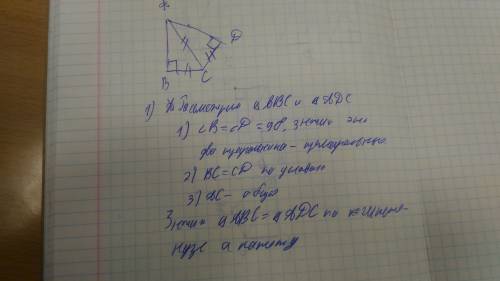 A
D
B
C
1) Рассмотрим △ABC и △ADC
1) ∠B = ∠D = 90°, значит эти
два треугольника – прямоугольные
2) BC = CD по условию
3) AC – общая
Значит △ABC = △ADC по гипоте-
нузе и катету